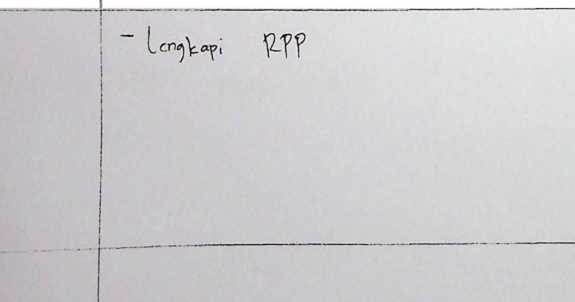 - Lengkapi RPP